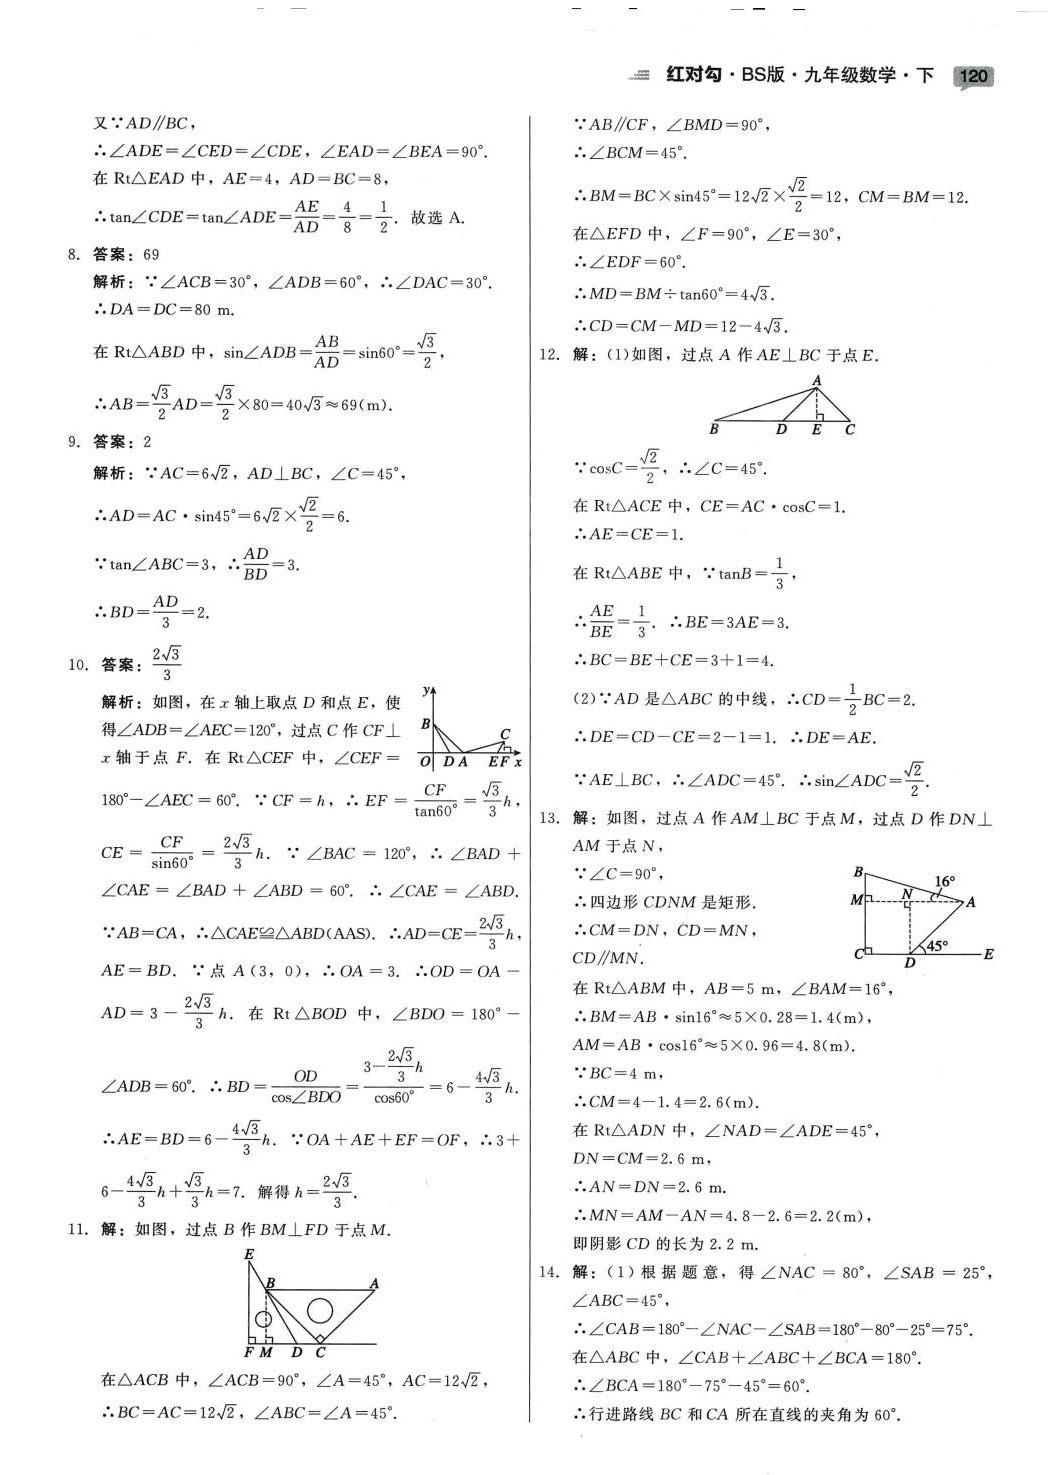 红对勾·BS版·九年级数学·下 120
又∵AD∥BC，
∴∠ADE=∠CED=∠CDE，∠EAD=∠BEA=90°.
在 Rt△EAD 中，AE=4，AD=BC=8，
∴tan∠CDE=tan∠ADE=AE/AD=4/8=1/2. 故选 A.
8. 答案：69
解析：∵∠ACB=30°，∠ADB=60°，∴∠DAC=30°.
∴DA=DC=80 m.
在 Rt△ABD 中，sin∠ADB=AB/AD=sin60°=√3/2，
∴AB=√3/2 AD=√3/2×80=40√3≈69(m).
9. 答案：2
解析：∵AC=6√2，AD⊥BC，∠C=45°，
∴AD=AC·sin45°=6√2×√2/2=6.
∵tan∠ABC=3，∴AD/BD=3.
∴BD=AD/3=2.
10. 答案：2√3/3
解析：如图，在 x 轴上取点 D 和点 E，使
得∠ADB=∠AEC=120°，过点 C 作 CF⊥
x 轴于点 F. 在 Rt△CEF 中，∠CEF=
180°-∠AEC=60°. ∵CF=h，∴EF=CF/tan60°=√3/3 h，
CE=CF/sin60°=2√3/3 h. ∵∠BAC=120°，∴∠BAD+
∠CAE=∠BAD+∠ABD=60°. ∴∠CAE=∠ABD.
∵AB=CA，∴△CAE≌△ABD(AAS). ∴AD=CE=2√3/3 h，
AE=BD. ∵点 A(3，0)，∴OA=3. ∴OD=OA-
AD=3-2√3/3 h. 在 Rt△BOD 中，∠BDO=180°-
∠ADB=60°. ∴BD=OD/cos∠BDO=(3-2√3/3 h)/cos60°=6-4√3/3 h.
∴AE=BD=6-4√3/3 h. ∵OA+AE+EF=OF，∴3+
6-4√3/3 h+√3/3 h=7. 解得 h=2√3/3.
y
B
C
O D A E F x
11. 解：如图，过点 B 作 BM⊥FD 于点 M.
E
B A
F M D C
在△ACB 中，∠ACB=90°，∠A=45°，AC=12√2，
∴BC=AC=12√2，∠ABC=∠A=45°.
∵AB∥CF，∠BMD=90°，
∴∠BCM=45°.
∴BM=BC×sin45°=12√2×√2/2=12，CM=BM=12.
在△EFD 中，∠F=90°，∠E=30°，
∴∠EDF=60°.
∴MD=BM÷tan60°=4√3.
∴CD=CM-MD=12-4√3.
12. 解：(1)如图，过点 A 作 AE⊥BC 于点 E.
A
B D E C
∵cosC=√2/2，∴∠C=45°.
在 Rt△ACE 中，CE=AC·cosC=1.
∴AE=CE=1.
在 Rt△ABE 中，∵tanB=1/3，
∴AE/BE=1/3. ∴BE=3AE=3.
∴BC=BE+CE=3+1=4.
(2)∵AD 是△ABC 的中线，∴CD=1/2 BC=2.
∴DE=CD-CE=2-1=1. ∴DE=AE.
∵AE⊥BC，∴∠ADC=45°. ∴sin∠ADC=√2/2.
13. 解：如图，过点 A 作 AM⊥BC 于点 M，过点 D 作 DN⊥
AM 于点 N，
∵∠C=90°，
∴四边形 CDNM 是矩形.
∴CM=DN，CD=MN，
CD∥MN.
B
16°
M N A
45°
C D E
在 Rt△ABM 中，AB=5 m，∠BAM=16°，
∴BM=AB·sin16°≈5×0.28=1.4(m)，
AM=AB·cos16°≈5×0.96=4.8(m).
∵BC=4 m，
∴CM=4-1.4=2.6(m).
在 Rt△ADN 中，∠NAD=∠ADE=45°，
DN=CM=2.6 m，
∴AN=DN=2.6 m.
∴MN=AM-AN=4.8-2.6=2.2(m)，
即阴影 CD 的长为 2.2 m.
14. 解：(1)根据题意，得∠NAC=80°，∠SAB=25°，
∠ABC=45°，
∴∠CAB=180°-∠NAC-∠SAB=180°-80°-25°=75°.
在△ABC 中，∠CAB+∠ABC+∠BCA=180°.
∴∠BCA=180°-75°-45°=60°.
∴行进路线 BC 和 CA 所在直线的夹角为 60°.